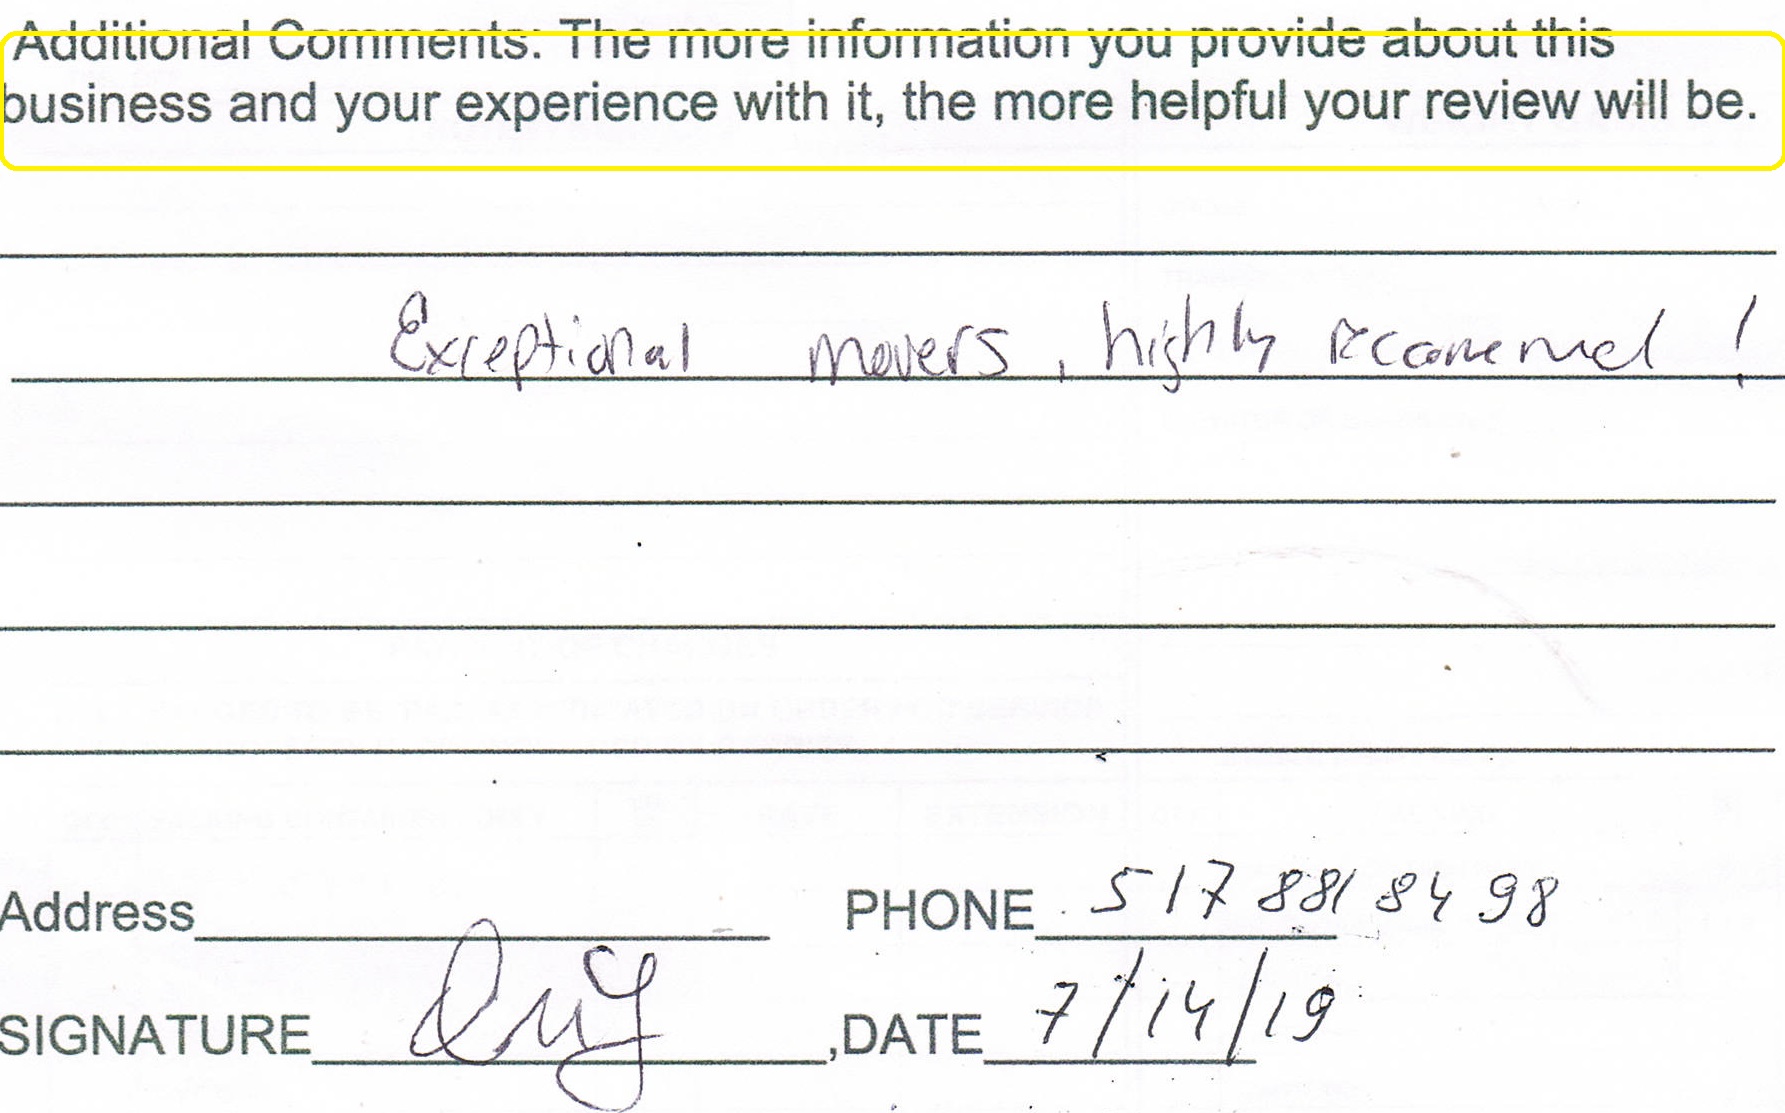 Additional Comments: The more information you provide about this
business and your experience with it, the more helpful your review will be.
Exceptional movers, highly recommend!
Address PHONE 517 881 84 98
SIGNATURE ,DATE 7/14/19